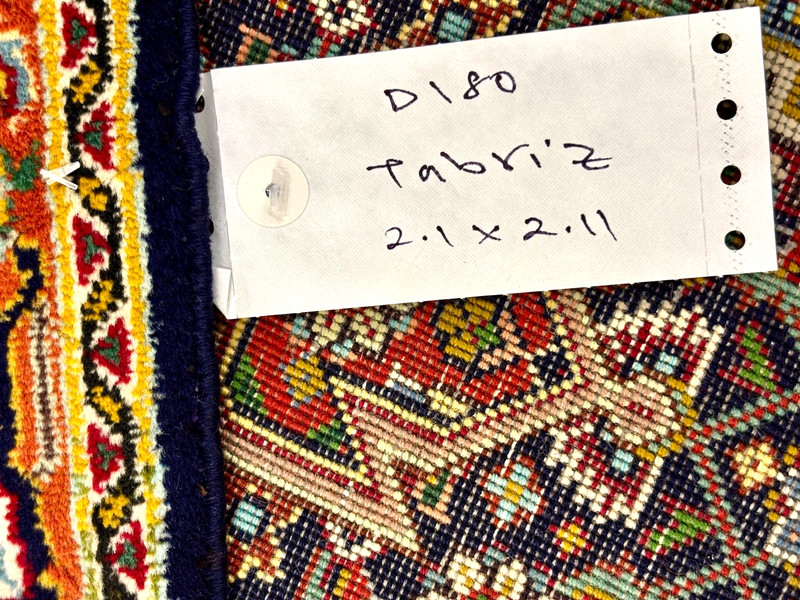 D180
Tabriz
2.1 x 2.11